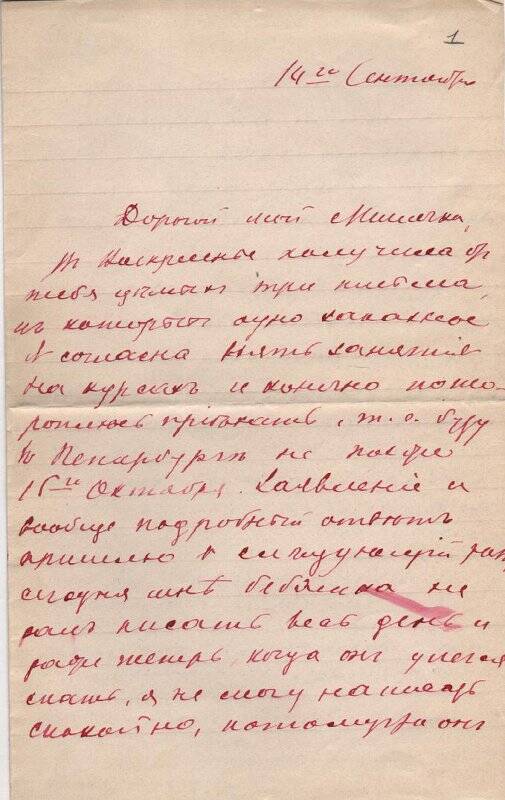 1
14го Сентября
Дорогой мой Мишечка,
въ Воскресенье получила отъ
тебя цѣлыхъ три письма,
изъ которыхъ одно заказное
Я согласна взять занятія
на курсахъ и конечно пото-
роплюсь пріѣхать, т. е. буду
въ не позже
15го Октября. Заявленіе и
вообще подробный отвѣтъ
пришлю въ слѣдующій разъ,
сегодня мнѣ не
далъ писать весь день и
даже теперь, когда онъ улегся
спать, я не могу писать
спокойно, потому что онъ